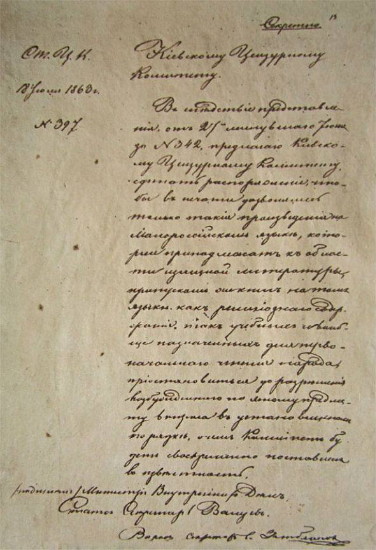 Секретно
От. Ц. К.
18 Июля 1863 г.
N 397
Кіевскому Цензурному
Комитету.
Въ слѣдствіе представле-
нія, отъ 27го минувшаго Іюня
за N 342, предлагаю Кіевско-
му Цензурному Комитету,
сдѣлать распоряженіе, что-
бы къ печати дозволялись
только такія произведенія на
Малороссійскомъ языкѣ, кото-
рыя принадлежатъ къ облас-
ти изящной литературы;
пропускомъ же книгъ на томъ
языкѣ какъ религіознаго содер-
жанія, такъ учебныхъ и вооб-
ще назначенныхъ для перво-
начальнаго чтенія народа,
пріостановиться до разрѣшенія
возбужденнаго по этому предме-
ту вопроса въ установленномъ
порядкѣ, о чемъ Комитетъ бу-
детъ своевременно поставленъ
въ извѣстность.
подписалъ: Министръ Внутреннихъ Дѣлъ,
Статсъ Секретарь Валуевъ
секретарь